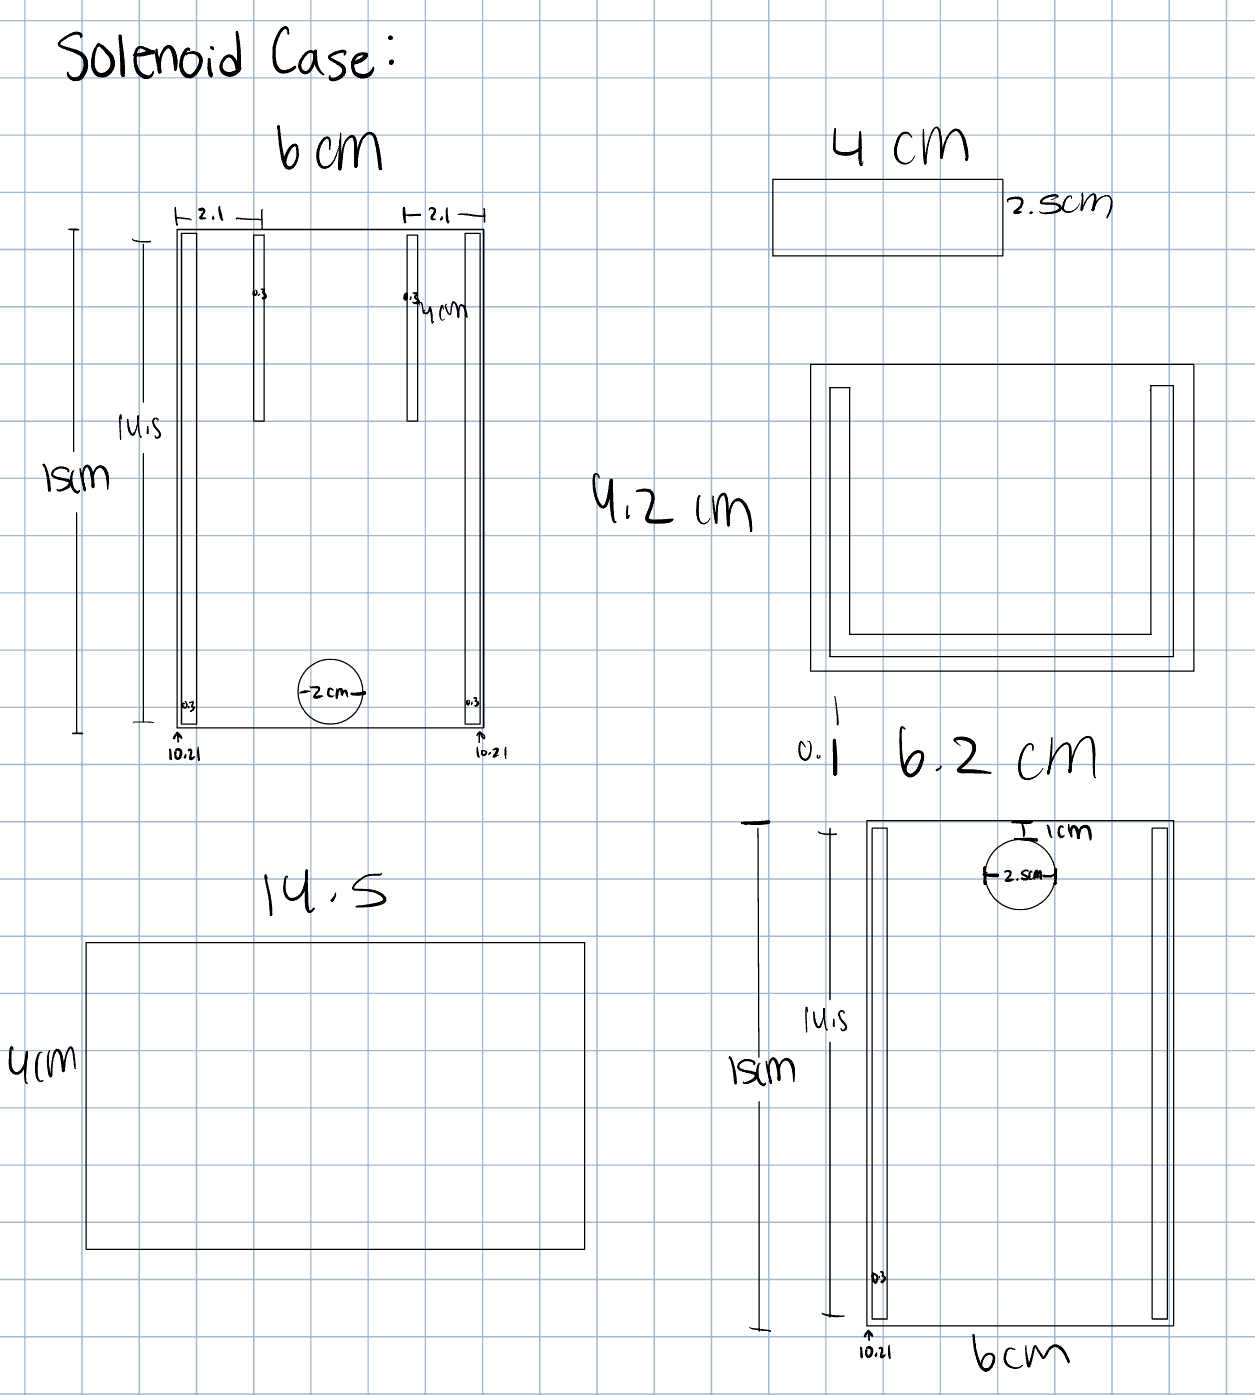 Solenoid Case:
6 cm
2.1
2.1
0.3
0.3
4cm
14.5
15cm
2cm
0.3
0.3
10.21
10.21
4 cm
2.5cm
4.2 cm
0.1
6.2 cm
14.5
4cm
1cm
2.5cm
14.5
15cm
0.3
10.21
6cm